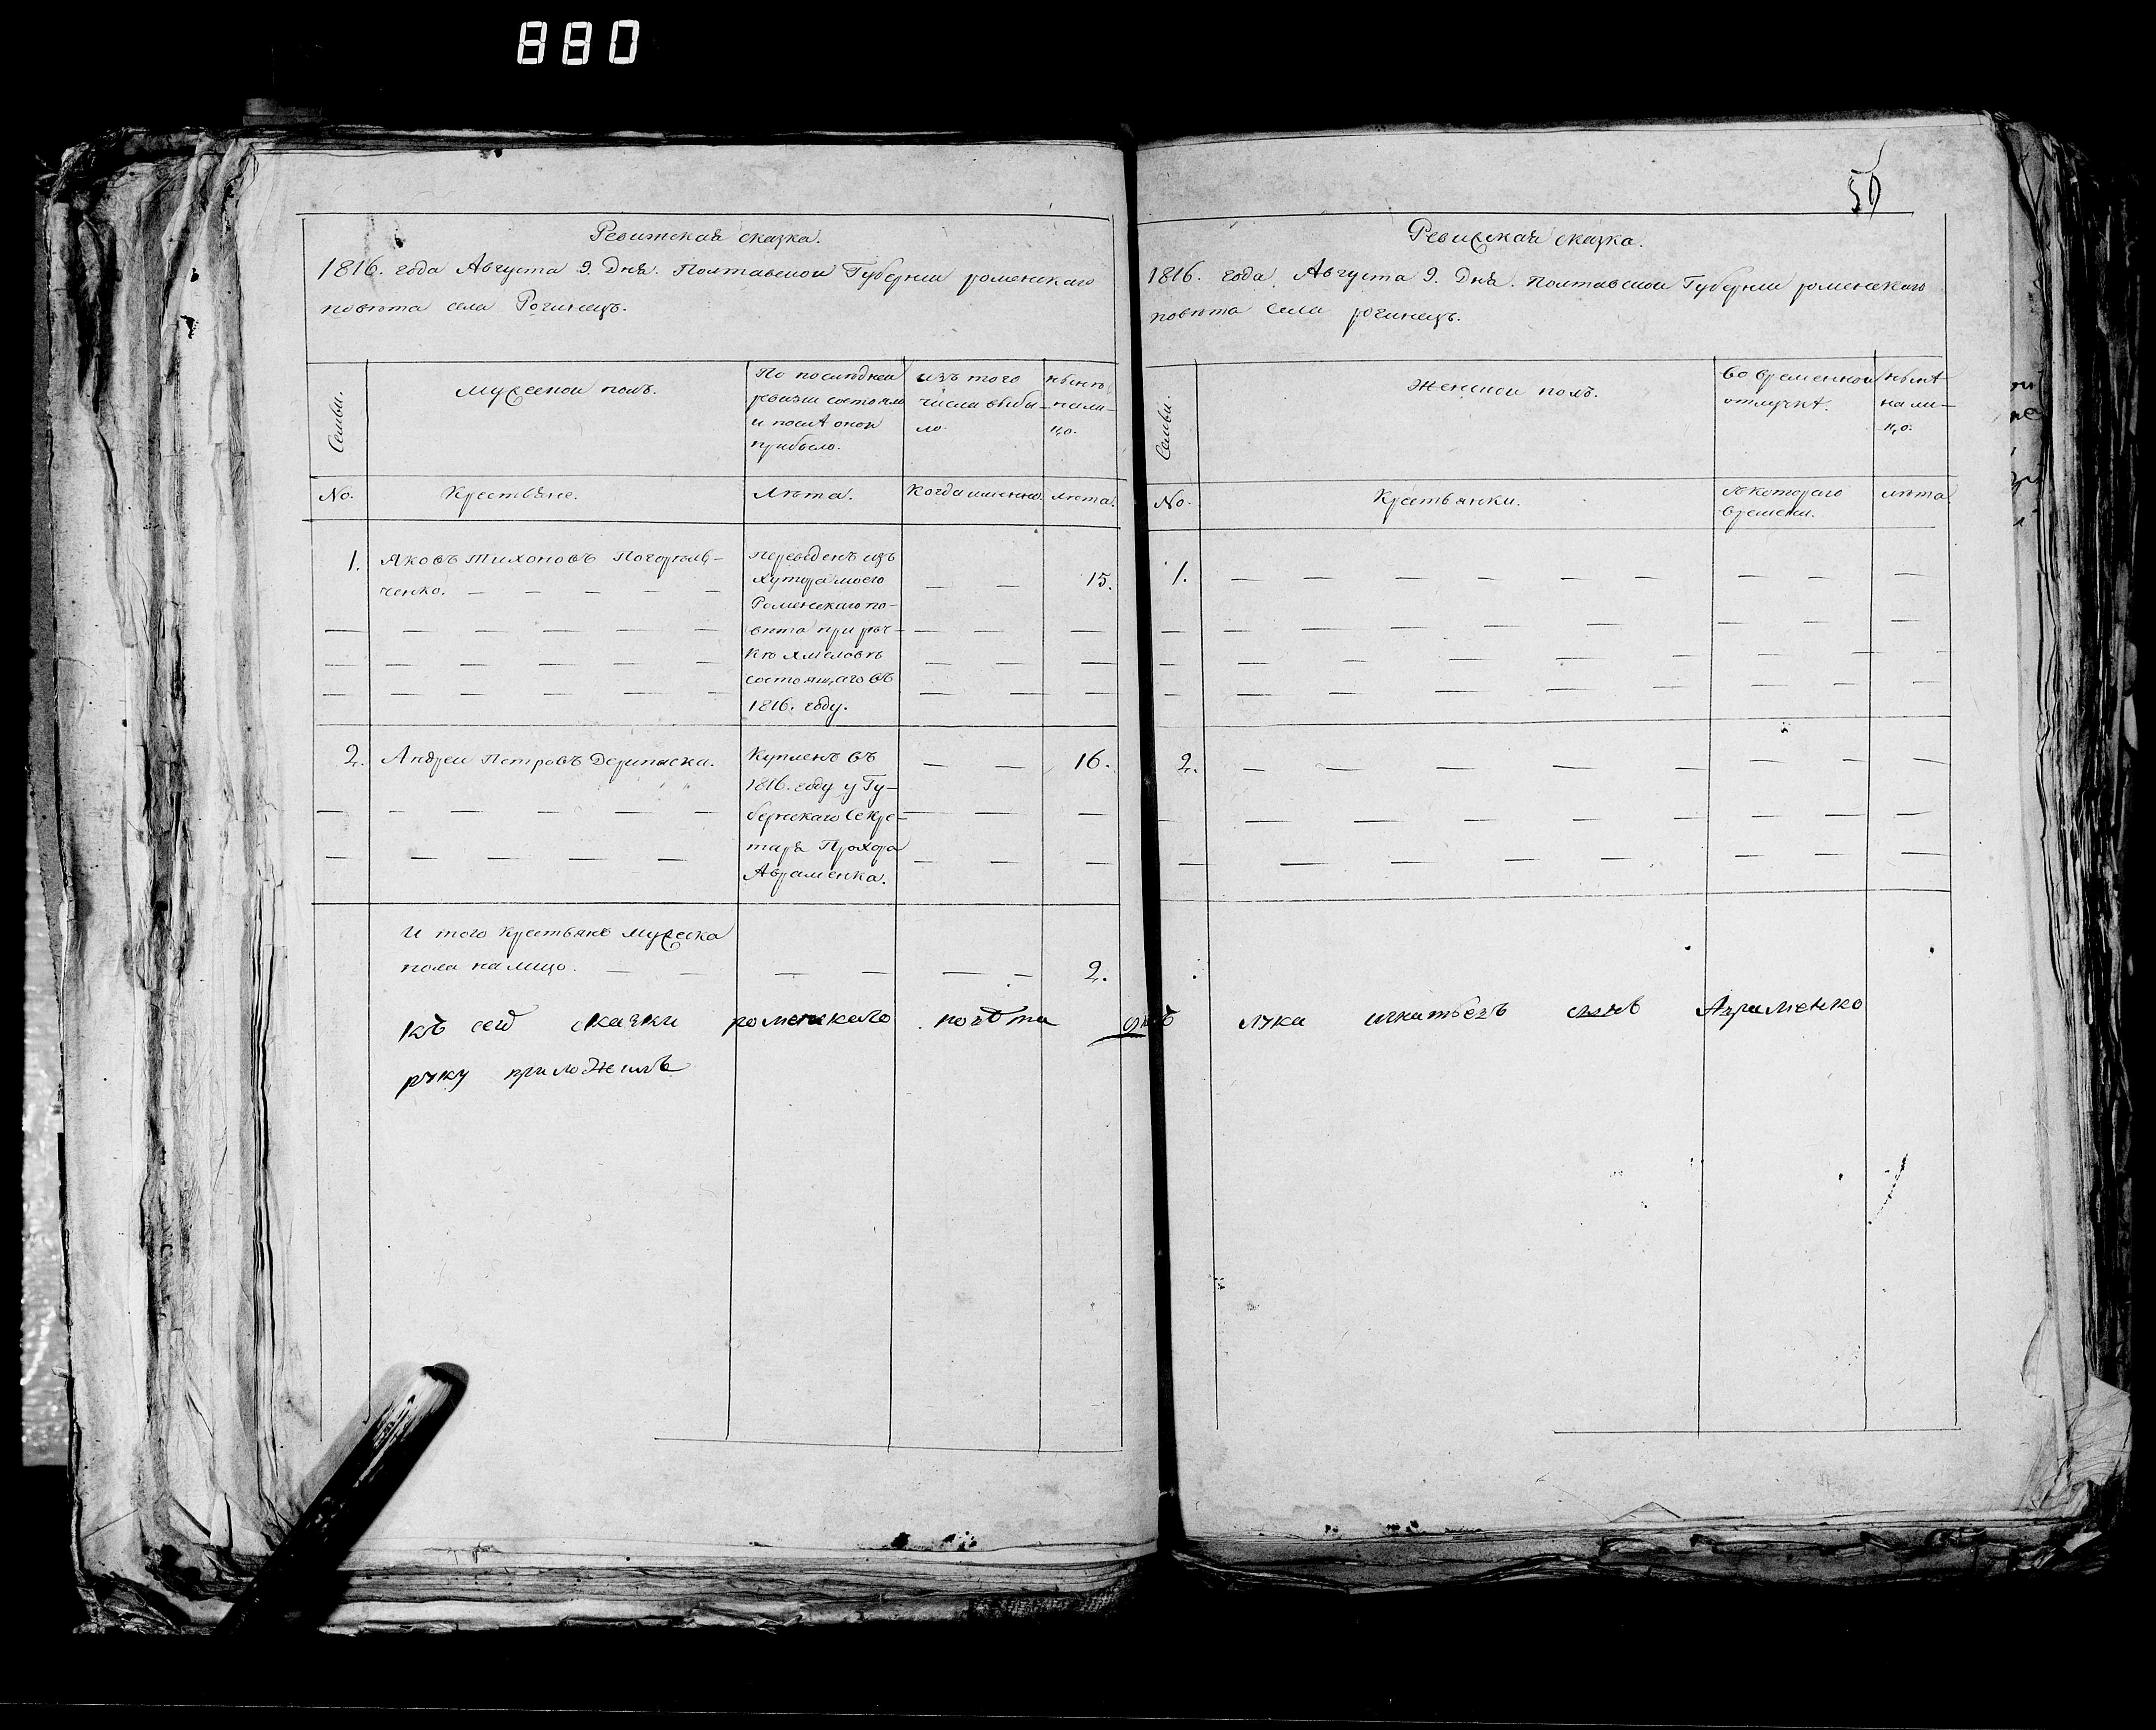 880
50
Ревижская сказка.
1816. года Августа 9. Дня. Полтавской Губернии роменскаго
повѣта села Рогинецъ.
Семьи.
Мужеской полъ.
По последней
ревизи состояло
и послѣ оной
прибыло.
изъ того
числа выбы-
ло.
нынѣ
нали-
цо.
No.
Крестьяне.
Лѣта.
Когда именно.
лѣта.
1.
Яковъ Тихоновъ Погорѣль-
ченко.
переведенъ изъ
хутора моего
Роменскаго по-
вѣта при рѣч-
кѣ хмеловкѣ
состоящаго въ
1816. году.
15.
2.
Андрей Петровъ Дерипаска.
Купленъ въ
1816. году у Гу-
бернскаго Секре-
таря Прохора
Авраменка.
16.
И того крестьянъ мужеска
пола на лицо.
2.
Ревижская сказка.
1816. года Августа 9. Дня. Полтавской Губернии роменскаго
повѣта села рогинецъ.
Семьи.
Женской полъ.
во временной
отлучкѣ.
нынѣ
нали-
цо.
No.
Крестьянки.
съ котораго
времени.
лѣта
1.
2.
къ сей сказки роменскаго повѣта лука сынъ Авраменко
руку приложилъ